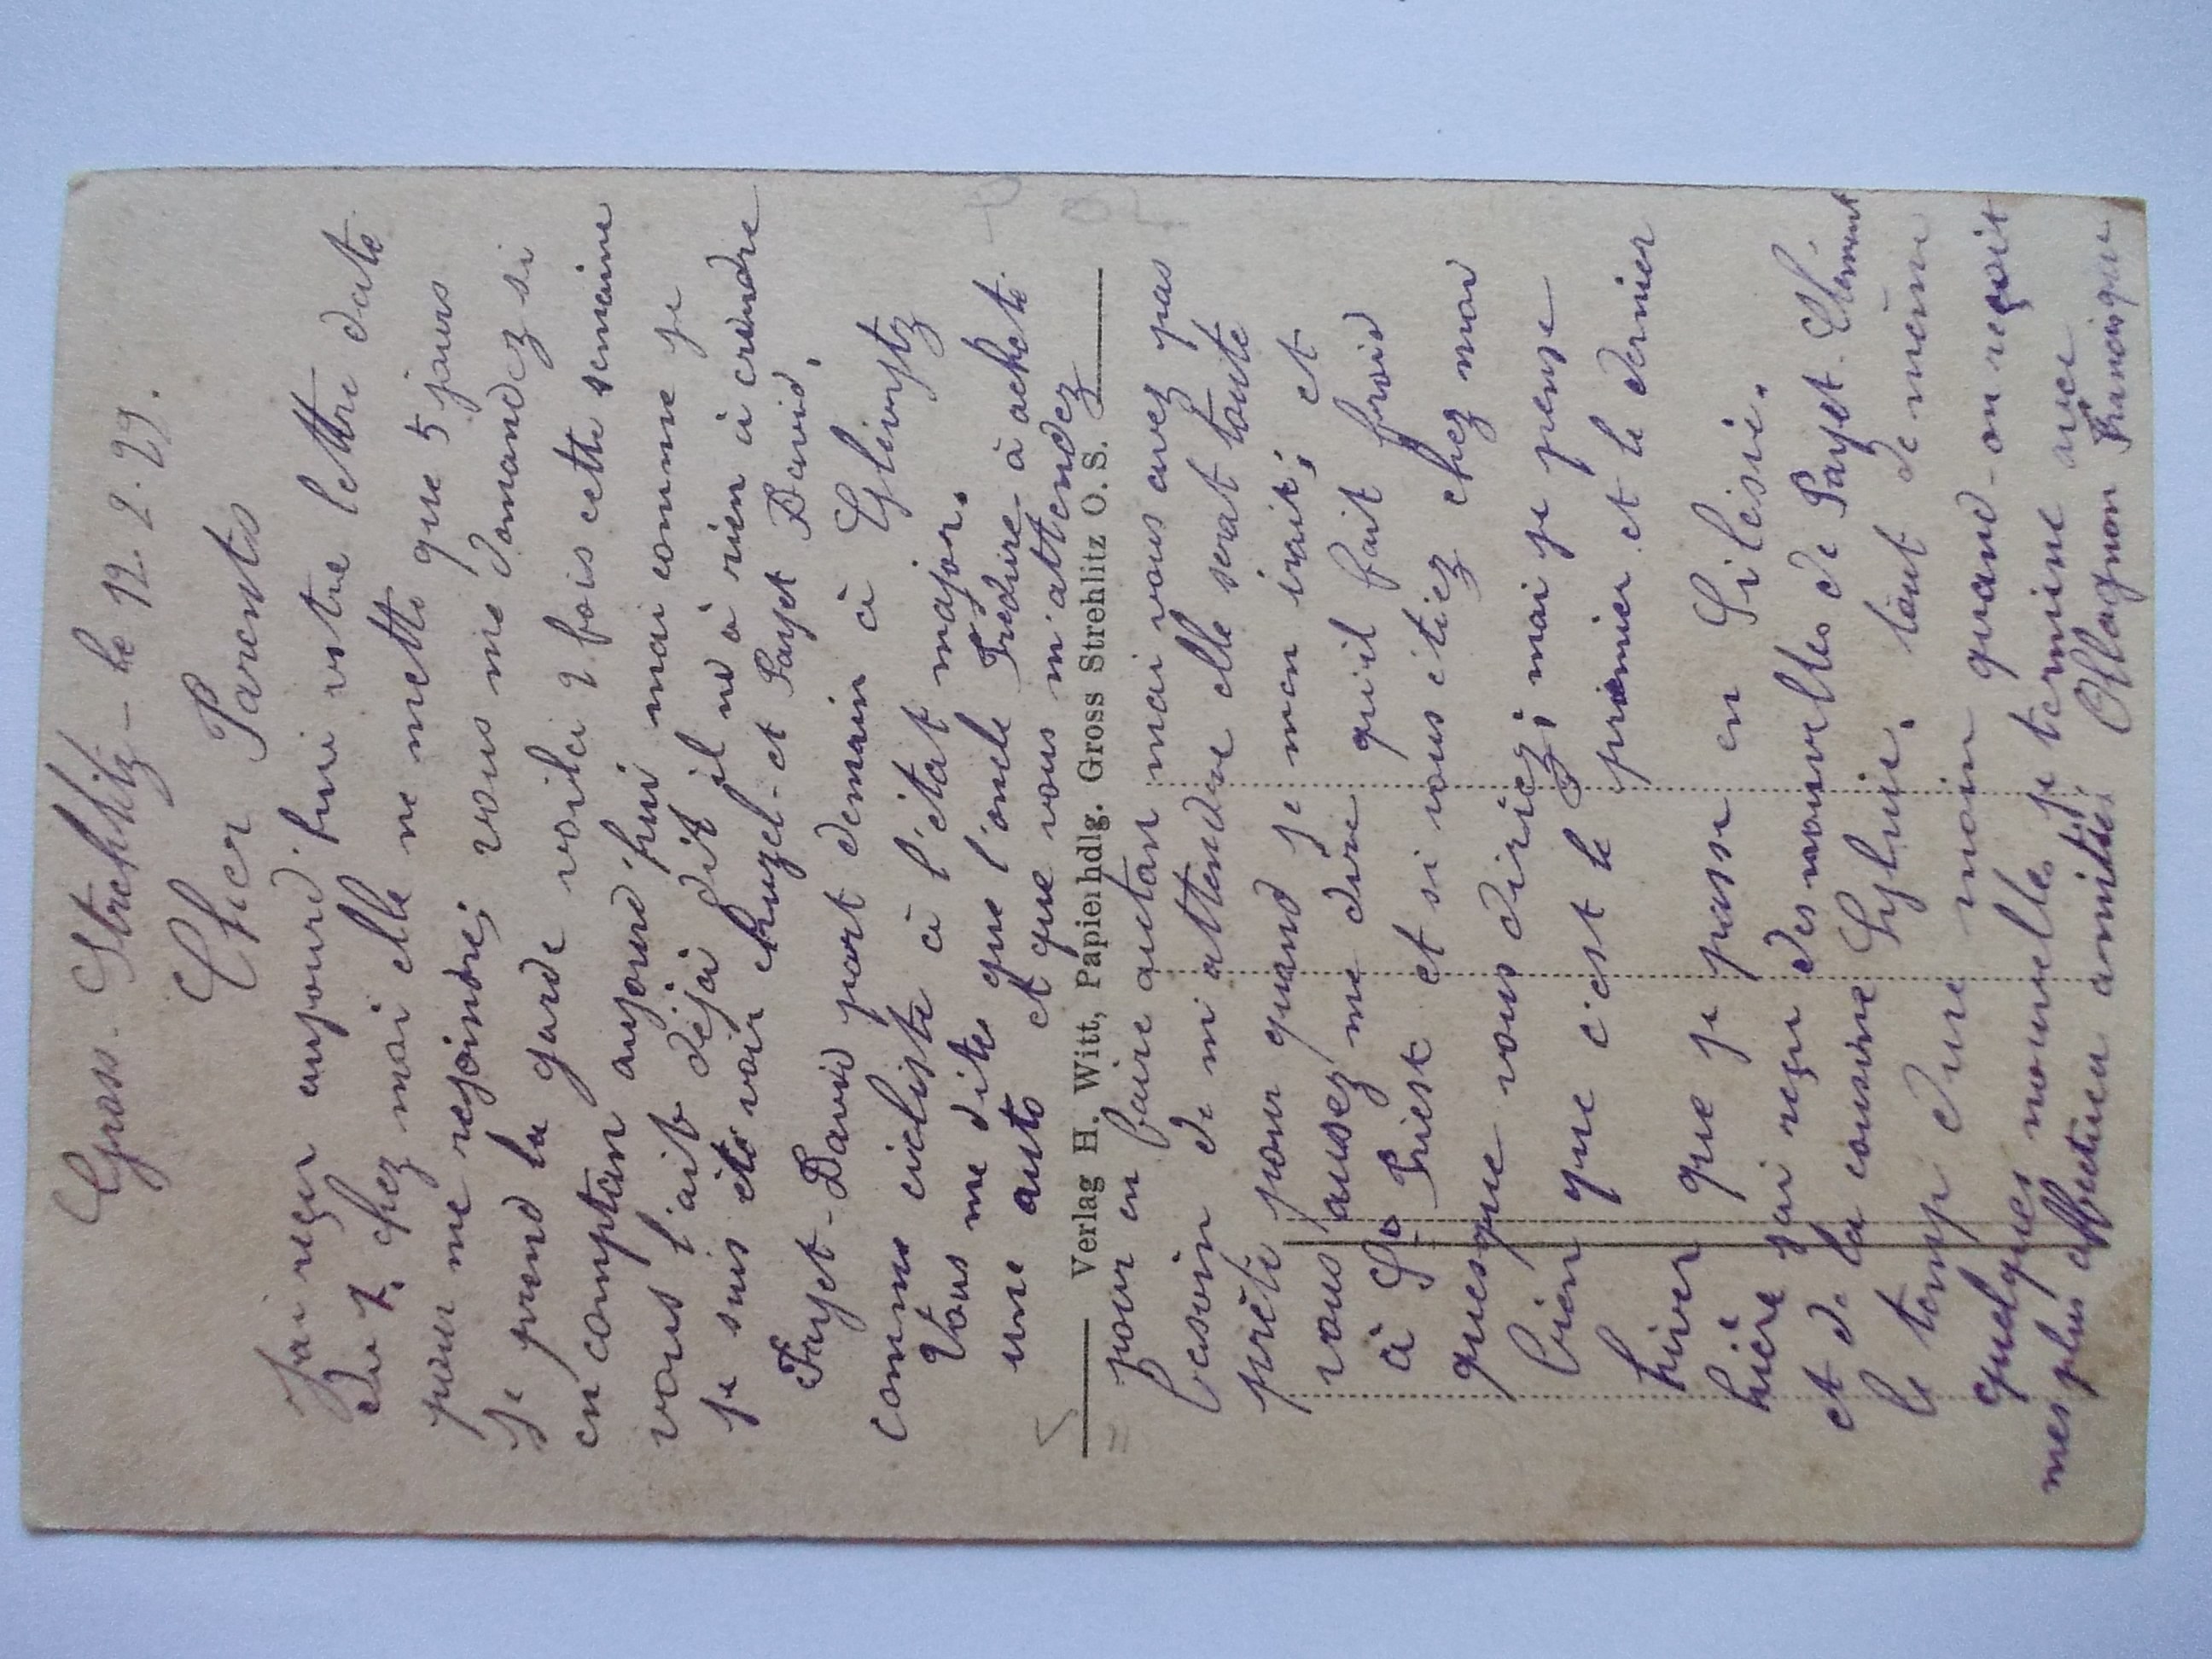 Gross-Strehlitz - le 12.2.21.
Cher Parents
J'ai reçu aujourd'hui votre lettre daté
du 7. chez moi elle ne mette que 5 jours
pour me rejoindre; vous me demandez si
Je prend la garde voilci 2 fois cette semaine
en comptan aujourd'hui mai comme je
vous l'ait déjà dit il n'o à rien à craindre
je suis été voir chuzel - et Payet David,
Payet-David part demain à Gleivytz
comme cicliste à l'état major.
Vous me dite que l'oncle Frédure à acheté
une auto et que vous m'attendez
Verlag H. Witt, Papierhdlg. Gross Strehlitz O. S.
pour en faire autan mai vous avez pas
besoin de m'attendre elle serat toute
prête pour quand je man irait; et
vous ausez me dire qu'il fait froid
à St Priest et si vous étiez chez moi
quesque vous diriez; mai je pense
bien que c'est le premier et le dernier
hiver que je passe en Silésie.
hière j'ai reçu des nouvelles de Payet Clément
et de la cousine Sylvie, tout de même
le temp dure moin quand-on reçoit
quelques nouvelles je termine avec
mes plus affectueu amitiés. Ollagnon Francisque